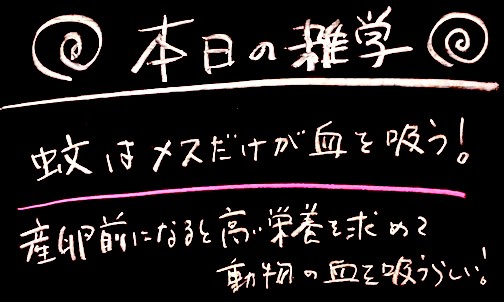 本日の雑学
蚊はメスだけが血を吸う!
産卵前になると高い栄養を求めて
動物の血を吸うらしい!